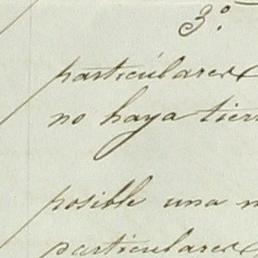 3.º
particulares
no haya tier
posible una
particulares